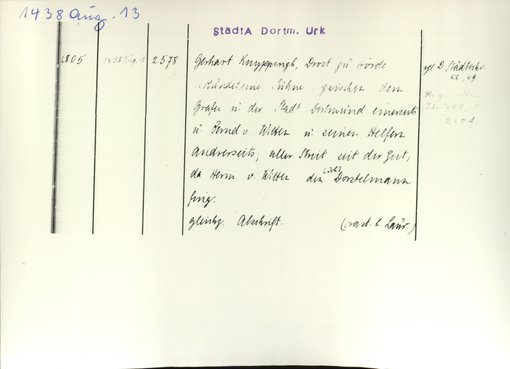 1438 Aug. 13
StadtA Dortm. Urk
1805
1438 Aug. 13
2578
Gerhart Knyppingh, Drost zu Hörde
eine Sühne zwischen dem
Grafen u der Stadt Dortmund einerseits
u Bernd v. Witten u seinen Helfern
Andrerseits, aller Streit seit der Zeit,
da Herm v. Witten den Dorstelmann
fing.
gleichz. Abschrift.
vgl D. Städtechr.
XX, 49